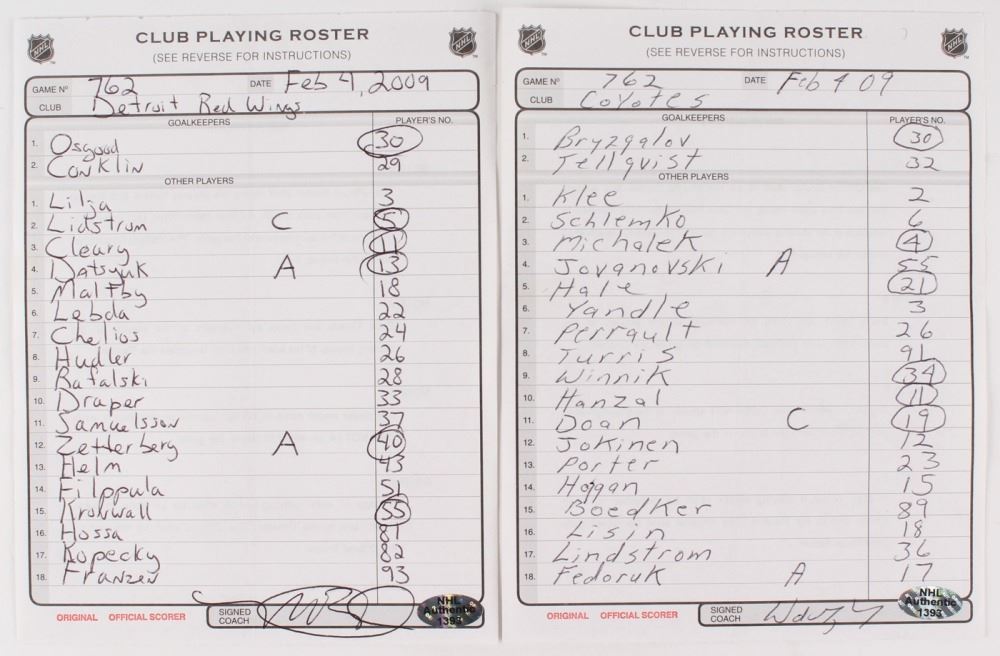 CLUB PLAYING ROSTER
(SEE REVERSE FOR INSTRUCTIONS)
GAME Nº 762 DATE Feb 4, 2009
CLUB Detroit Red Wings
GOALKEEPERS PLAYER'S NO.
1. Osgood 30
2. Conklin 29
OTHER PLAYERS
1. Lilja 3
2. Lidstrom C 5
3. Cleary 11
4. Datsyuk A 13
5. Maltby 18
6. Lebda 22
7. Chelios 24
8. Hudler 26
9. Rafalski 28
10. Draper 33
11. Samuelsson 37
12. Zetterberg A 40
13. Helm 43
14. Filppula 51
15. Kronwall 55
16. Hossa 81
17. Kopecky 82
18. Franzen 93
ORIGINAL OFFICIAL SCORER SIGNED COACH
NHL Authentic 1393
CLUB PLAYING ROSTER
(SEE REVERSE FOR INSTRUCTIONS)
GAME Nº 762 DATE Feb 4 09
CLUB Coyotes
GOALKEEPERS PLAYER'S NO.
1. Bryzgalov 30
2. Tellqvist 32
OTHER PLAYERS
1. Klee 2
2. Schlemko 6
3. Michalek 4
4. Jovanovski A 55
5. Hale 21
6. Yandle 3
7. Perrault 26
8. Turris 91
9. Winnik 34
10. Hanzal 11
11. Doan C 19
12. Jokinen 12
13. Porter 23
14. Hogan 15
15. Boedker 89
16. Lisin 18
17. Lindstrom 36
18. Fedoruk A 17
ORIGINAL OFFICIAL SCORER SIGNED COACH
NHL Authentic 1393